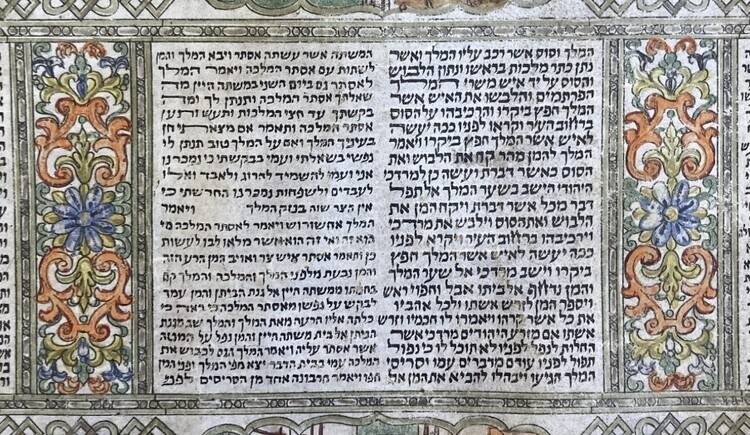 המלך וסוס אשר רכב עליו המלך ואשר
נתן כתר מלכות בראשו ונתון הלבוש
והסוס על יד איש משרי המלך
הפרתמים והלבשו את האיש אשר
המלך חפץ ביקרו והרכיבהו על הסוס
ברחוב העיר וקראו לפניו ככה יעשה
לאיש אשר המלך חפץ ביקרו ויאמר
המלך להמן מהר קח את הלבוש ואת
הסוס כאשר דברת ועשה כן למרדכי
היהודי היושב בשער המלך אל תפל
דבר מכל אשר דברת ויקח המן את
הלבוש ואת הסוס וילבש את מרדכי
וירכיבהו ברחוב העיר ויקרא לפניו
ככה יעשה לאיש אשר המלך חפץ
ביקרו וישב מרדכי אל שער המלך
והמן נדחף אל ביתו אבל וחפוי ראש
ויספר המן לזרש אשתו ולכל אהביו
את כל אשר קרהו ויאמרו לו חכמיו וזרש
אשתו אם מזרע היהודים מרדכי אשר
החלות לנפל לפניו לא תוכל לו כי נפול
תפול לפניו עודם מדברים עמו וסריסי
המלך הגיעו ויבהלו להביא את המן אל
המשתה אשר עשתה אסתר ויבא המלך והמן
לשתות עם אסתר המלכה ויאמר המלך
לאסתר גם ביום השני במשתה היין מה
שאלתך אסתר המלכה ותנתן לך ומה
בקשתך עד חצי המלכות ותעש ותען
אסתר המלכה ותאמר אם מצאתי חן
בעיניך המלך ואם על המלך טוב תנתן לי
נפשי בשאלתי ועמי בבקשתי כי נמכרנו
אני ועמי להשמיד להרוג ולאבד ואלו
לעבדים ולשפחות נמכרנו החרשתי כי
אין הצר שוה בנזק המלך ויאמר
המלך אחשורוש ויאמר לאסתר המלכה מי
הוא זה ואי זה הוא אשר מלאו לבו לעשות
כן ותאמר אסתר איש צר ואויב המן הרע הזה
והמן נבעת מלפני המלך והמלכה והמלך קם
בחמתו ממשתה היין אל גנת הביתן והמן עמד
לבקש על נפשו מאסתר המלכה כי ראה כי
כלתה אליו הרעה מאת המלך והמלך שב מגנת
הביתן אל בית משתה היין והמן נפל על המטה
אשר אסתר עליה ויאמר המלך הגם לכבוש את
המלכה עמי בבית הדבר יצא מפי המלך ופני המן
חפו ויאמר חרבונה אחד מן הסריסים לפני